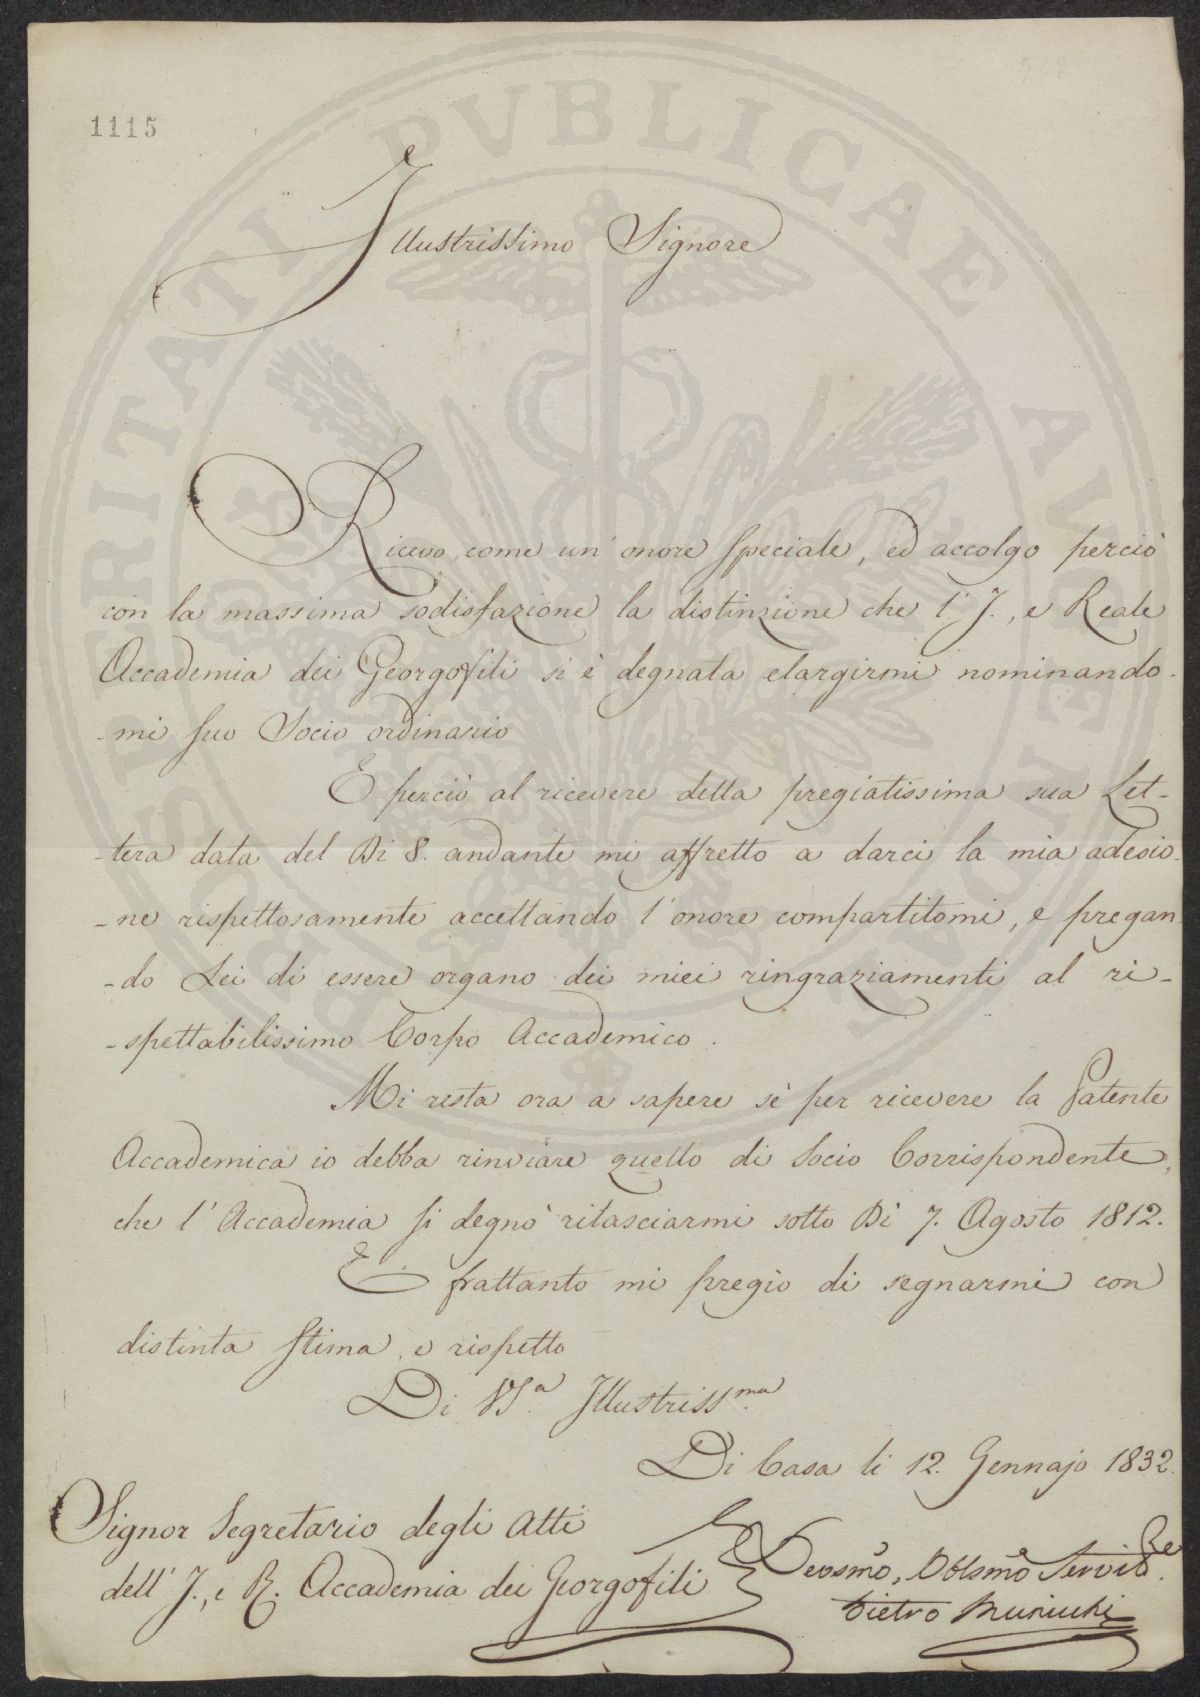 1115
PROSPERITATI PVBLICAE AVGENDAE
Illustrissimo Signore
Ricevo come un' onore speciale, ed accolgo perciò
con la massima sodisfazione la distinzione che l' J., e Reale
Accademia dei Georgofili si è degnata elargirmi nominando-
-mi suo Socio ordinario
E perciò al ricevere della pregiatissima sua Let-
-tera data del Dì 8. andante mi affretto a darci la mia adesio-
-ne rispettosamente accettando l' onore compartitomi, e pregan
-do Lei di essere organo dei miei ringraziamenti al ri-
-spettabilissimo Corpo Accademico.
Mi resta ora a sapere sè per ricevere la Patente
Accademica io debba rinviare quello di Socio Corrispondente,
che l' Accademia si degnò rilasciarmi sotto Dì 7. Agosto 1812.
E frattanto mi pregio di segnarmi con
distinta stima, e rispetto
Di VS.ª Illustriss.ma
Di Casa li 12. Gennajo 1832.
Signor Segretario degli Atti
dell' J., e R. Accademia dei Georgofili
Devosmo, Obblsmo Servid.re
Pietro